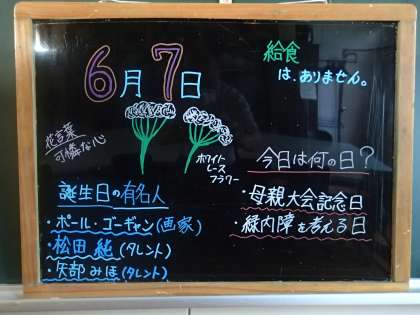 6月7日
給食
は、ありません。
花言葉
可憐な心
ホワイト
レース
フラワー
今日は何の日？
・母親大会記念日
・緑内障を考える日
誕生日の有名人
・ポール・ゴーギャン(画家)
・松田 純(タレント)
・矢部 みほ(タレント)